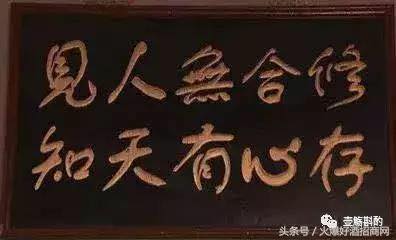 修合無人見
存心有天知
壶觞斟酌
头条号 / 火爆好酒招商网